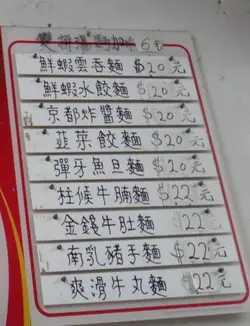 雙拼湯麵加 6元
鮮蝦雲吞麵 $20元
鮮蝦水餃麵 $20元
京都炸醬麵 $20元
韮菜餃麵 $20元
彈牙魚旦麵 $20元
柱候牛腩麵 $22元
金錢牛肚麵 $22元
南乳豬手麵 $22元
爽滑牛丸麵 $22元